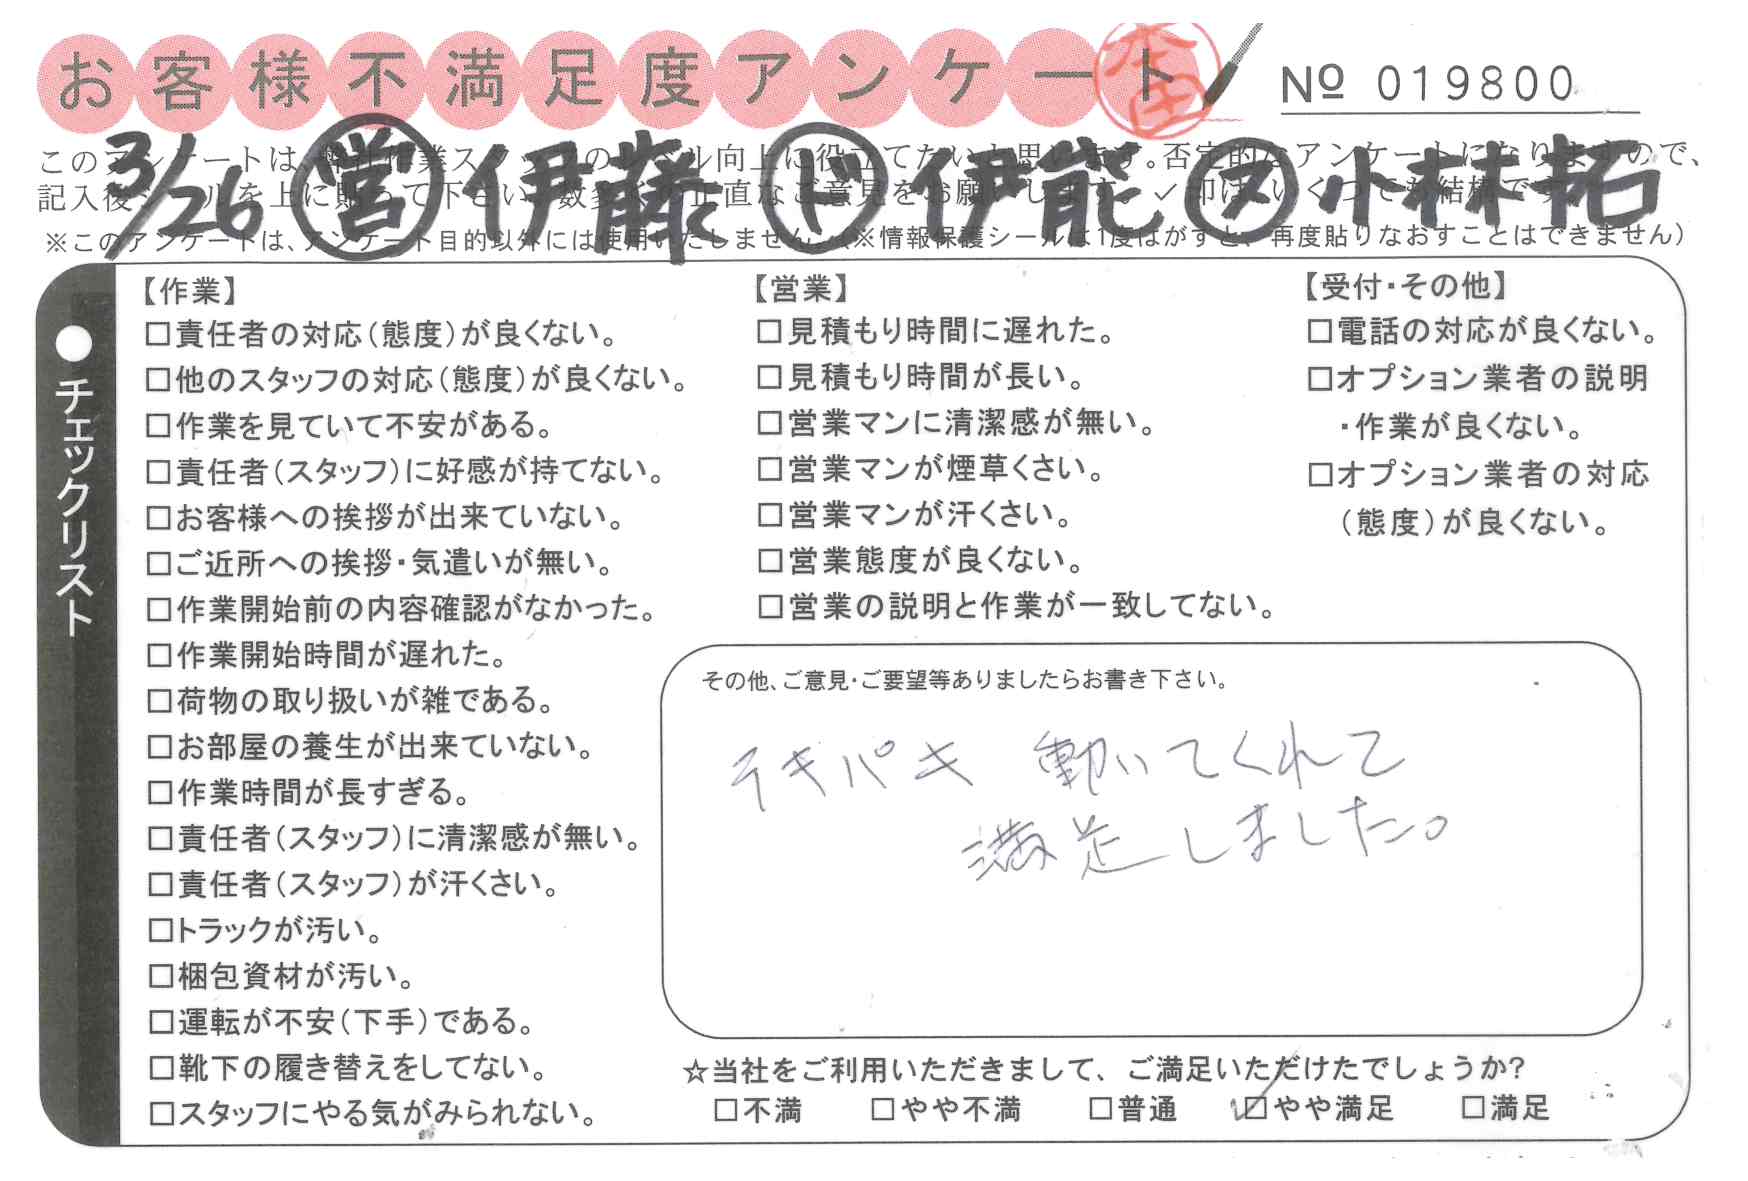 お客様不満足度アンケート
本田
№ 019800
3/26 営 伊藤 ド 伊能 ヲ 小林拓
このアンケートは、弊社作業スタッフのレベル向上に役立てたいと思います。否定的なアンケートになりますので、
記入後シールを上に貼って下さい。数多くの正直なご意見をお願いします。✓印は、いくつでも結構です。
※このアンケートは、アンケート目的以外には使用いたしません。(※情報保護シールは1度はがすと、再度貼りなおすことはできません)
●チェックリスト
【作業】
□責任者の対応(態度)が良くない。
□他のスタッフの対応(態度)が良くない。
□作業を見ていて不安がある。
□責任者(スタッフ)に好感が持てない。
□お客様への挨拶が出来ていない。
□ご近所への挨拶・気遣いが無い。
□作業開始前の内容確認がなかった。
□作業開始時間が遅れた。
□荷物の取り扱いが雑である。
□お部屋の養生が出来ていない。
□作業時間が長すぎる。
□責任者(スタッフ)に清潔感が無い。
□責任者(スタッフ)が汗くさい。
□トラックが汚い。
□梱包資材が汚い。
□運転が不安(下手)である。
□靴下の履き替えをしてない。
□スタッフにやる気がみられない。
【営業】
□見積もり時間に遅れた。
□見積もり時間が長い。
□営業マンに清潔感が無い。
□営業マンが煙草くさい。
□営業マンが汗くさい。
□営業態度が良くない。
□営業の説明と作業が一致してない。
【受付・その他】
□電話の対応が良くない。
□オプション業者の説明
・作業が良くない。
□オプション業者の対応
(態度)が良くない。
その他、ご意見・ご要望等ありましたらお書き下さい。
テキパキ 動いてくれて
満足しました。
☆当社をご利用いただきまして、ご満足いただけたでしょうか?
□不満 □やや不満 □普通 ☑やや満足 □満足